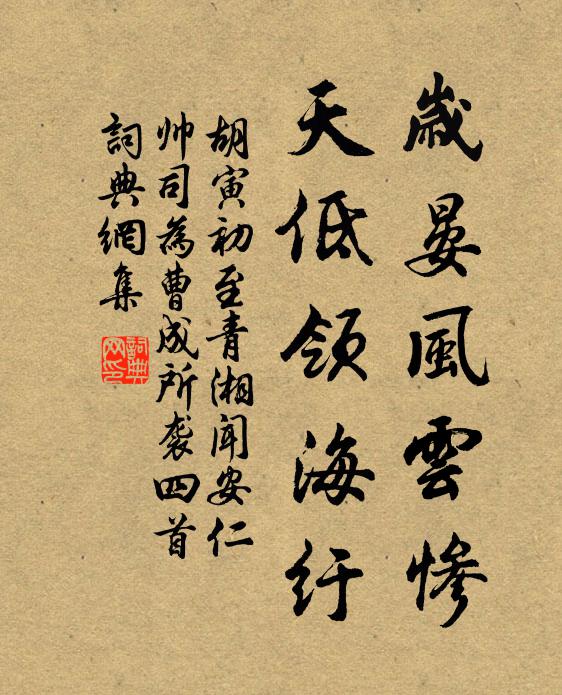 歲晏風雲慘
天低領海紆
胡寅初至青湘聞安仁
帅司為曹成所袭四首
詞典網集
詞典网印